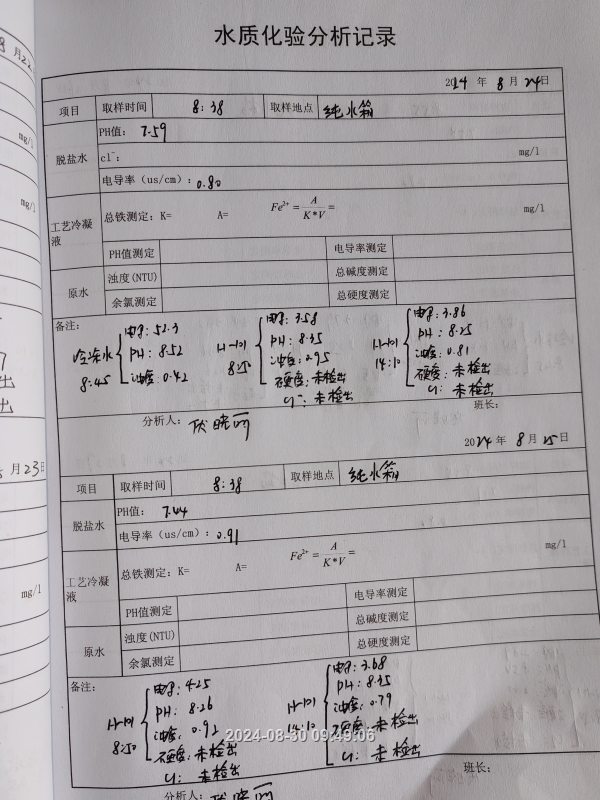 水质化验分析记录
2024 年 8 月 24日
项目 取样时间 8:38 取样地点 纯水箱
脱盐水 PH值: 7.59
cl⁻: mg/l
电导率(us/cm): 0.80
工艺冷凝液 总铁测定:K= A= Fe²⁺=A/K*V= mg/l
PH值测定 电导率测定
原水 浊度(NTU) 总碱度测定
余氯测定 总硬度测定
备注:
冷冻水 8:45 电导:52.3 PH:8.52 浊度:0.42
H-101 8:50 电导:3.58 PH:8.35 浊度:0.95 硬度:未检出 Cl⁻:未检出
H-101 14:10 电导:3.86 PH:8.25 浊度:0.81 硬度:未检出 Cl:未检出
分析人: 班长:
2024 年 8 月 25日
项目 取样时间 8:38 取样地点 纯水箱
脱盐水 PH值: 7.44
电导率(us/cm): 0.91
工艺冷凝液 总铁测定:K= A= Fe²⁺=A/K*V= mg/l
PH值测定 电导率测定
原水 浊度(NTU) 总碱度测定
余氯测定 总硬度测定
备注:
H-101 8:50 电导:4.25 PH:8.26 浊度:0.92 硬度:未检出 Cl:未检出
H-101 14:10 电导:3.68 PH:8.35 浊度:0.79 硬度:未检出 Cl:未检出
2024-08-30 09:49:06
分析人: 班长:
月23日
mg/l
mg/l
mg/l